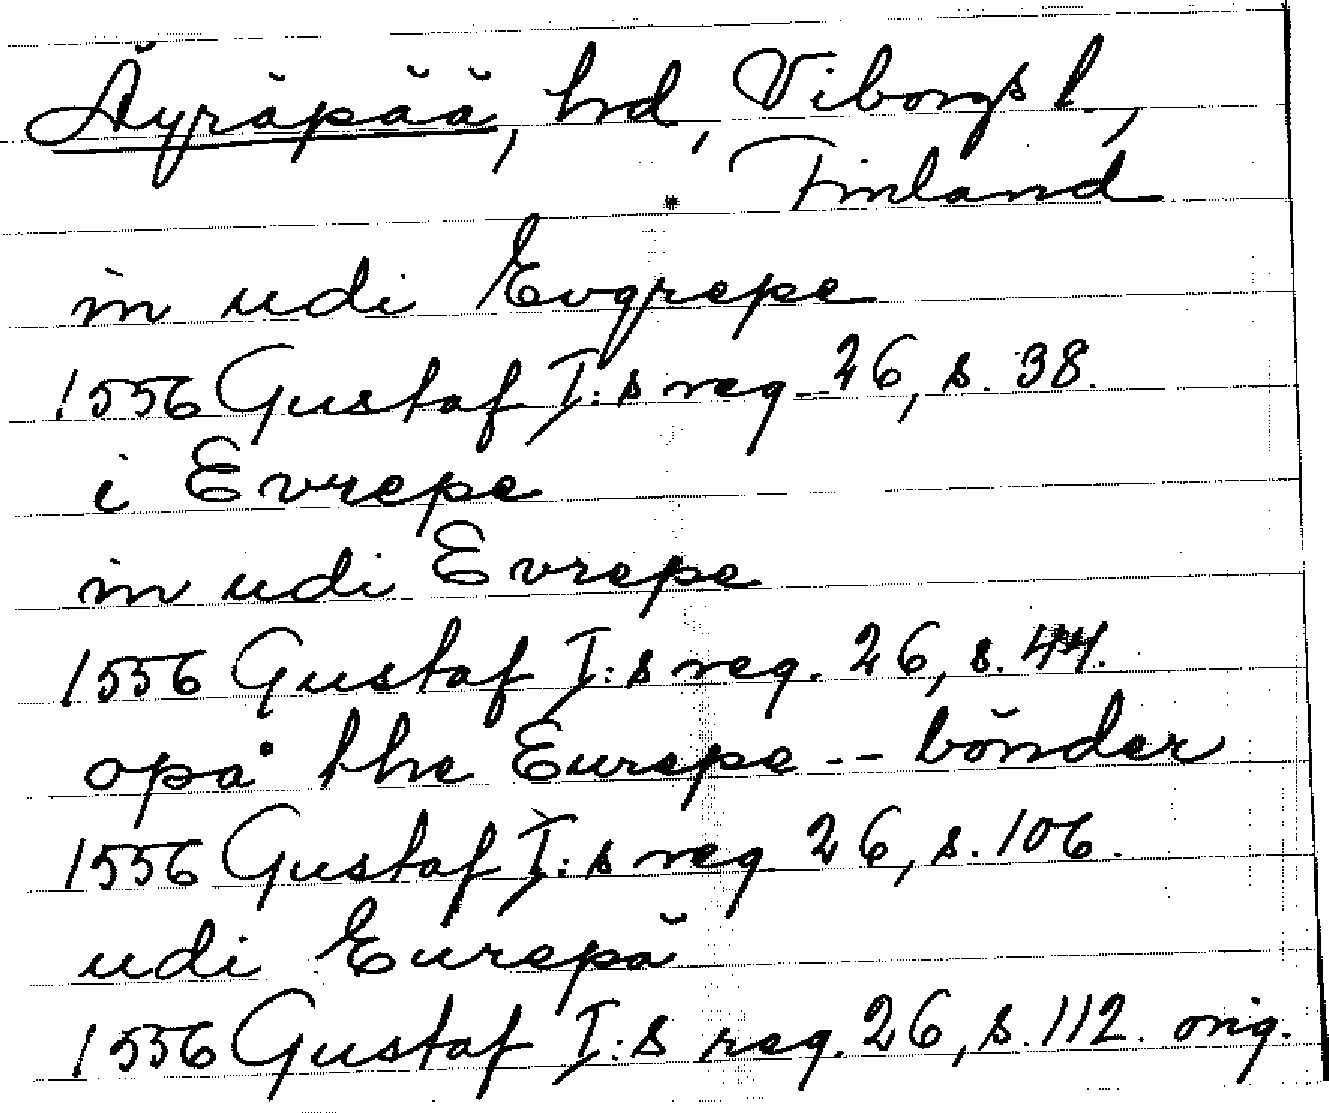 Äyräpää, hrd, Viborgs l.,
Finland
in udi Evgrepe
1556 Gustaf I:s reg. 26, s. 38.
i Evrepe
in udi Evrepe
1556 Gustaf I:s reg. 26, s. 44.
opå the Eurepe -- bönder
1556 Gustaf I:s reg. 26, s. 106.
udi Eurepä
1556 Gustaf I:s reg. 26, s. 112. orig.